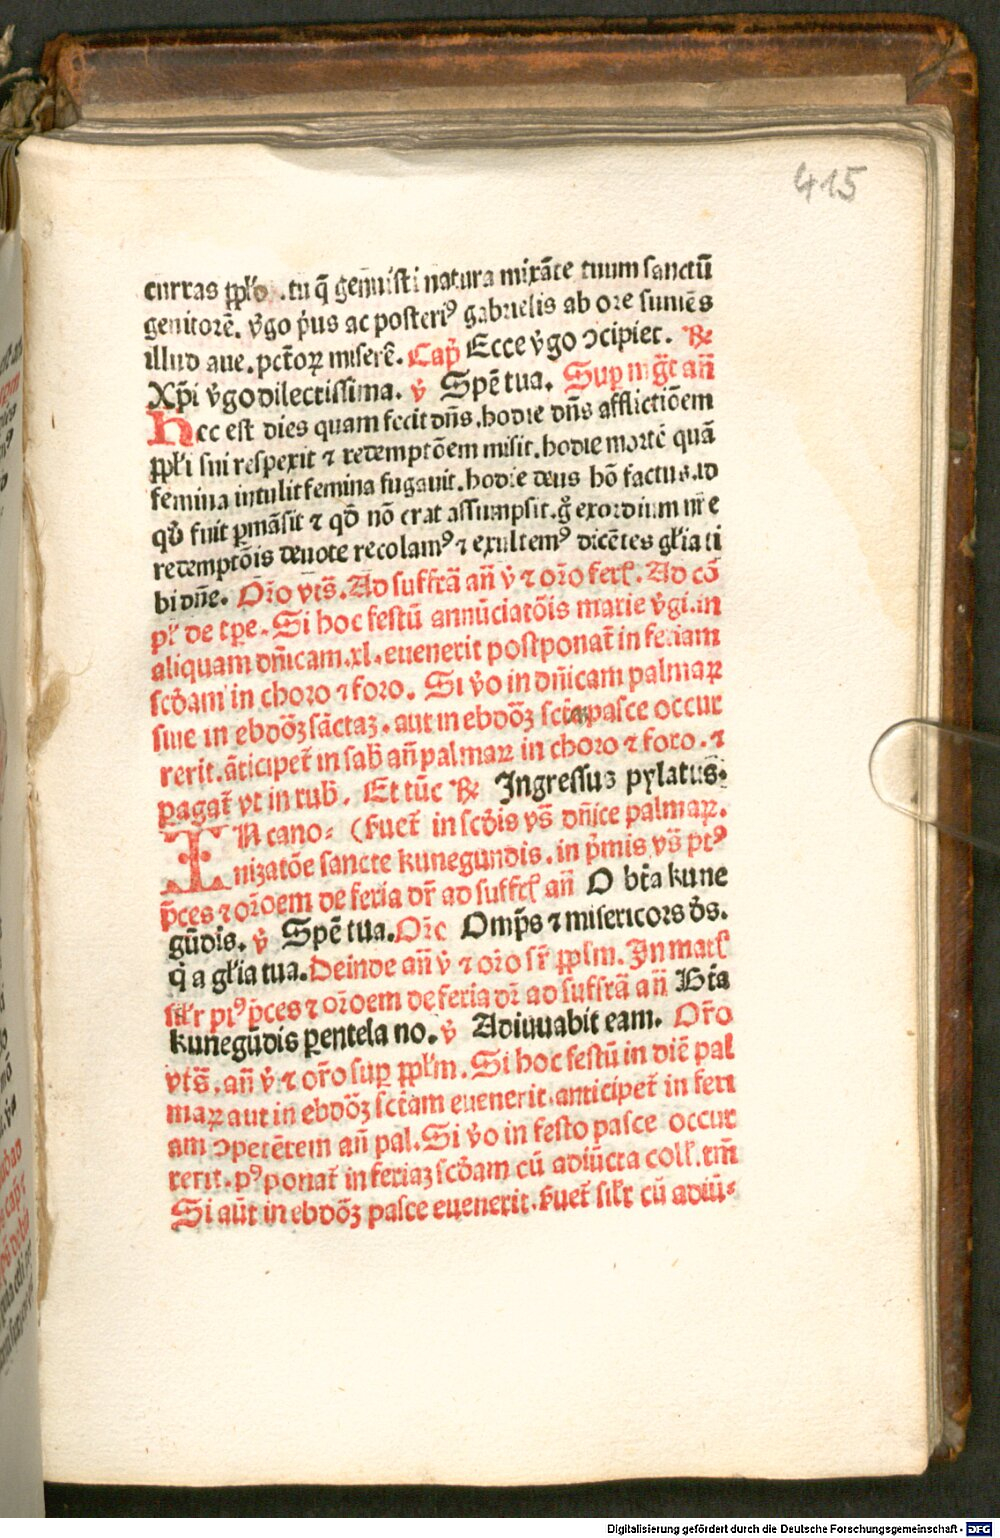 415
curras ppl'o .tu q̄ genuisti natura mirāte tuum sanctū
genitorē. v̓go p̓us ac posteri⁹ gabrielis ab ore sumēs
illud aue. pct̄oꝝ miserē. Cap̄ Ecce v̓go ↄcipiet. ℟
Xp̄i v̓go dilectissima. ℣ Spē tua. Sup m̄gt̄ an̄
Hec est dies quam fecit dn̄s. hodie dn̄s afflictiōem
ppl'i sui respexit ⁊ redemptōem misit. hodie mortē quā
femina intulit femina fugauit. hodie deus hō factus. id
qd̓ fuit ꝑmāsit ⁊ qd̓ nō erat assumpsit. g̊ exordium nr̄e
redemptōis deuote recolam⁹ ⁊ exultem⁹ dicētes gl'ia ti
bi dn̄e. Or̄o vts̄. Ad suffrā an̄ v̓ ⁊ or̄o ferl'. Ad cō
pl' de tꝑe. Si hoc festū annūciatōis marie v̓gi. in
aliquam dn̄icam .xl. euenerit postponat̄ in feriam
scd̓am in choro ⁊ foro. Si v̓o in dn̄icam palmaꝝ
siue in ebdōꝫ sāctaꝫ. aut in ebdōꝫ sctā pasce occur
rerit. āticipet̄ in sab̄ an̄ palmaꝝ in choro ⁊ foro. ⁊
ꝑagat̄ vt in rub̄. Et tūc ℟ Ingressus pylatus.
IN cano⸗ (ẜuet̄ in scd̓is vs̄ dn̄ice palmaꝝ.
nizatōe sancte kunegundis. in p̓mis vs̄ pt⁹
p̄ces ⁊ or̄oem de feria dr̄ ad suffrl' an̄ O bt̄a kune
gūdis. ℣ Spē tua. Or̄o Omp̄s ⁊ misericors d̓s.
q̓ a gl'ia tua. Deinde an̄ v̓ ⁊ or̄o sr̄ pplm̄. In matl'
sil'r pt⁹ p̄ces ⁊ or̄oem de feria dr̄ ad suffrā an̄ Bt̄a
kunegūdis ꝑentela no. ℣ Adiuuabit eam. Or̄o
vts̄. an̄ v̓. ⁊ or̄o suꝑ ppl'm. Si hoc festū in diē pal
maꝝ aut in ebdōꝫ sct̄am euenerit. anticipet̄ in feri
am ↄpetētem an̄ pal. Si v̓o in festo pasce occur
rerit. p⁹ponat̄ in feriaꝫ scd̓am cū adiūcta coll'. tm̄
Si aūt in ebdōꝫ pasce euenerit. ẜuet̄ sil'r cū adiū⸗
Digitalisierung gefördert durch die Deutsche Forschungsgemeinschaft - DFG